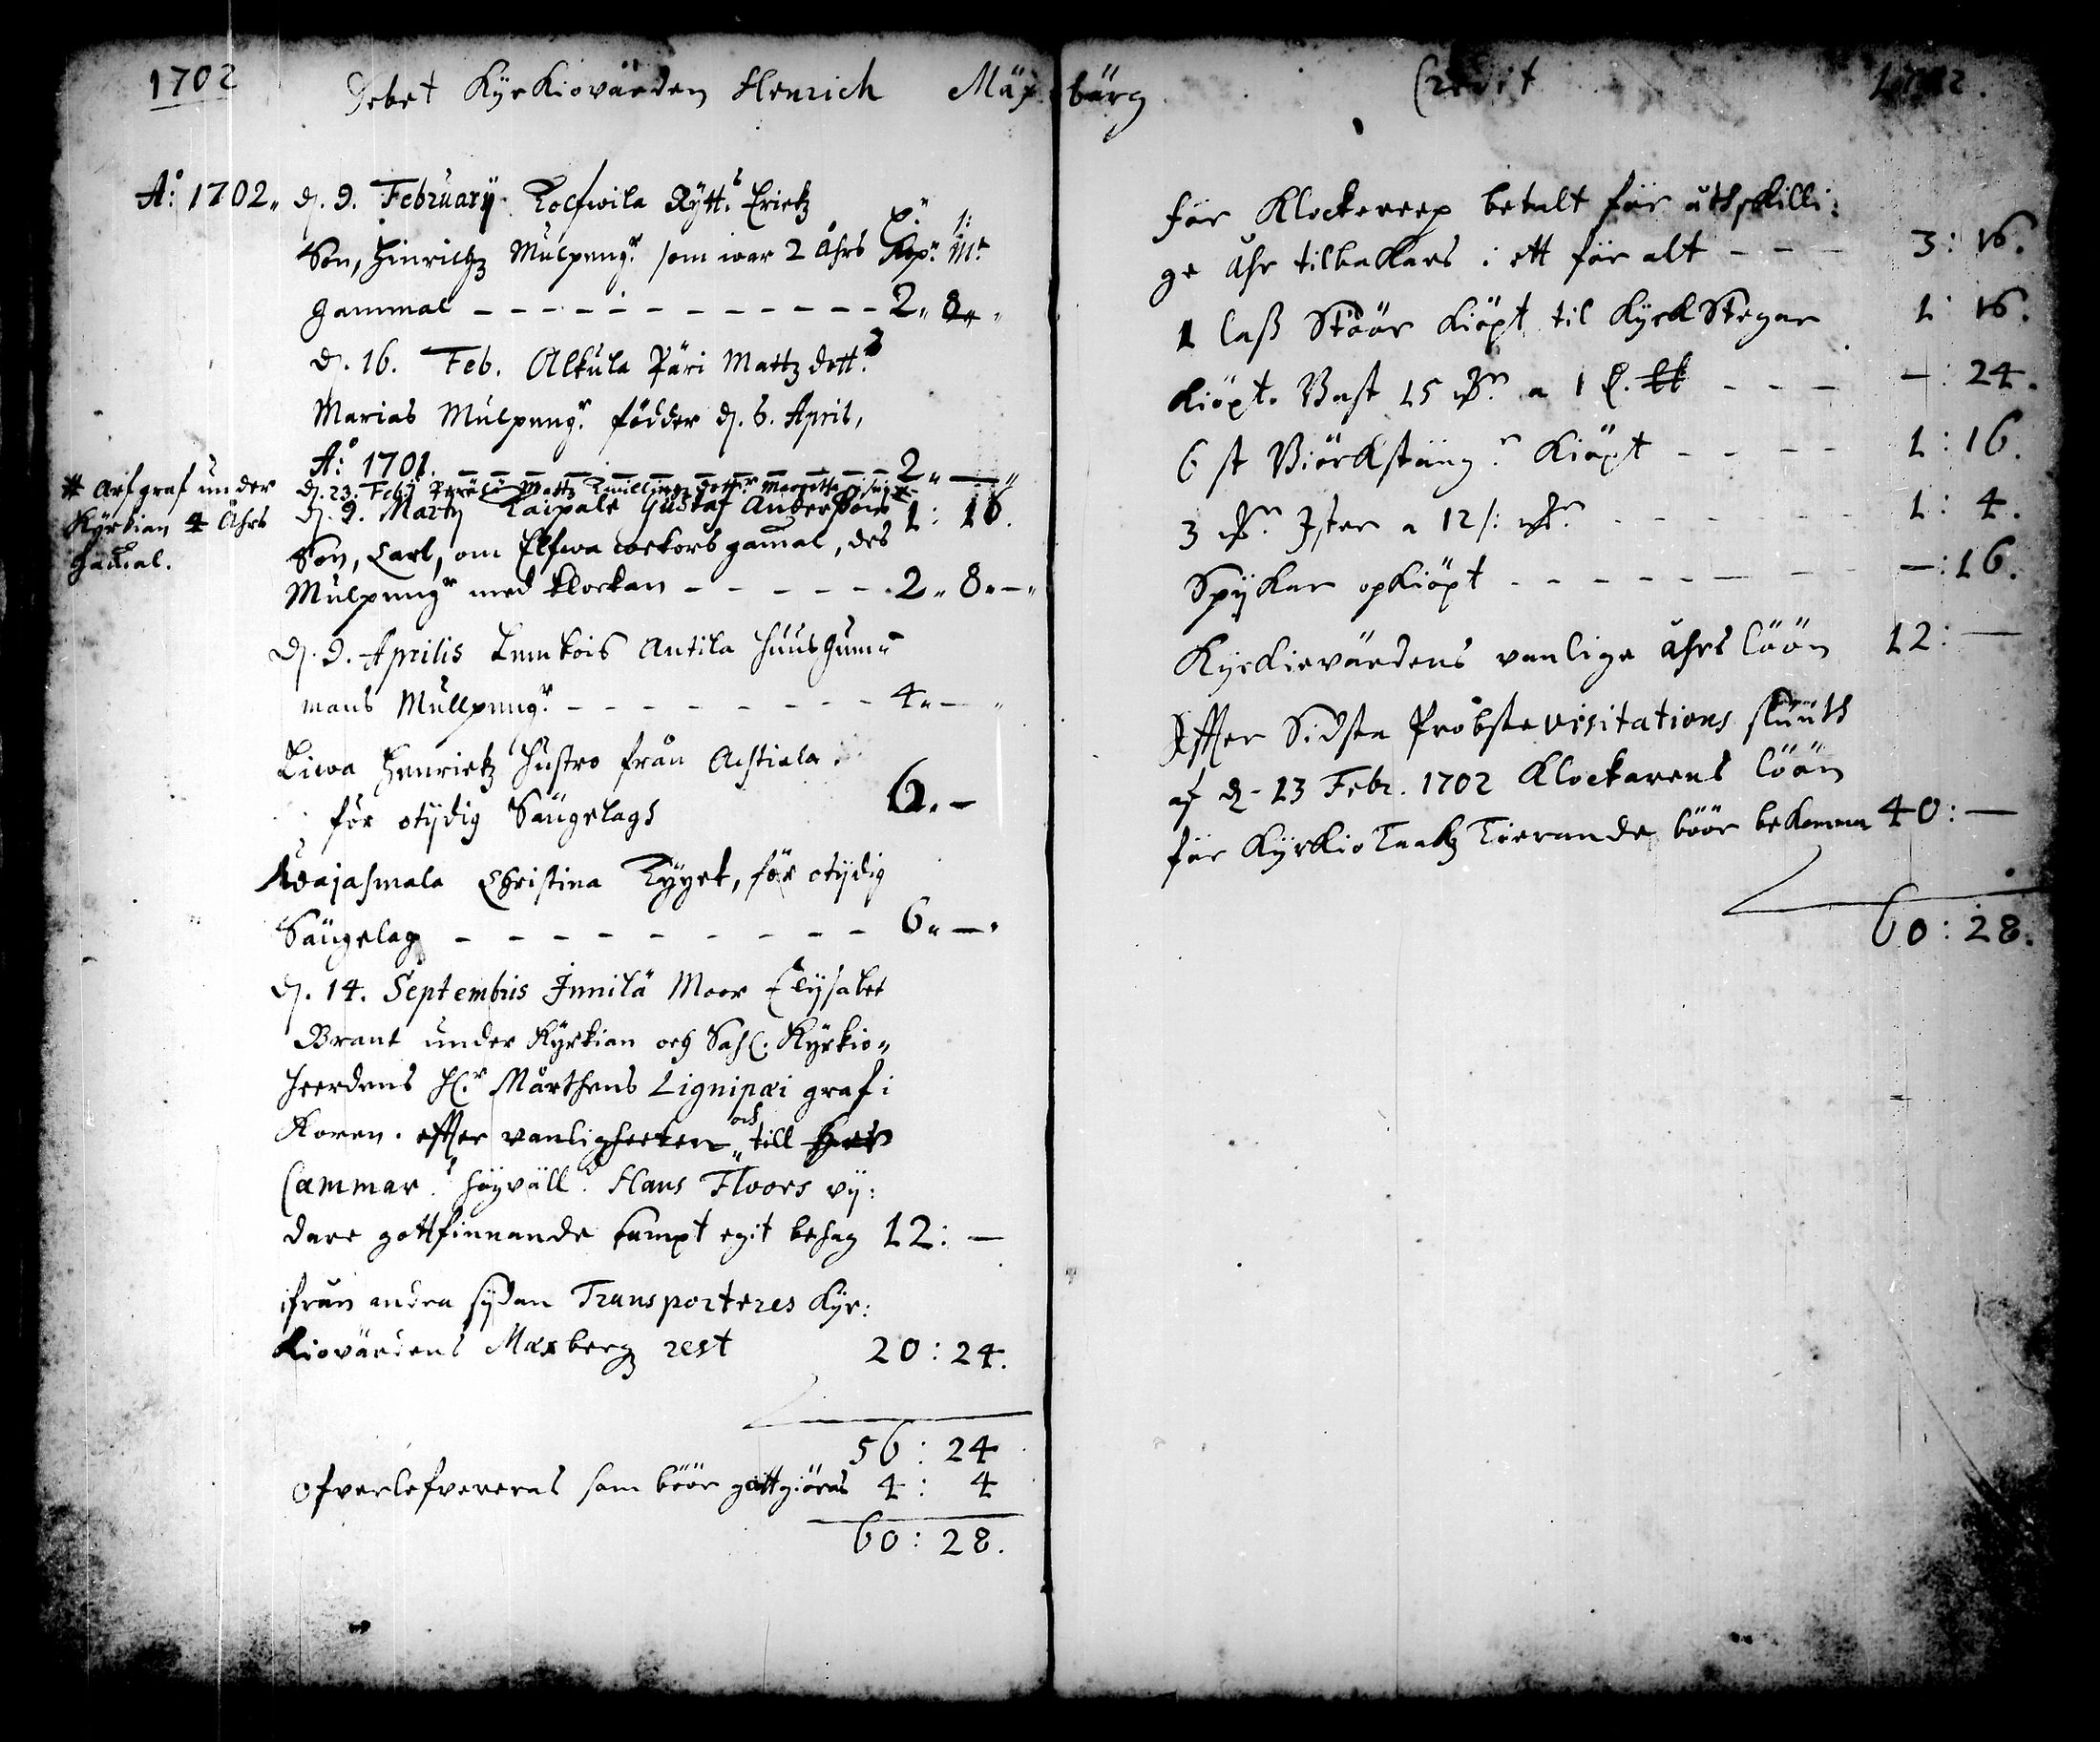 1702
Debet Kyrkiovärden Henrich Mäxbärg
A:o 1702. d. 9. February Rytt:s Erichz
Son, Hinrichz Mulpeng:r som war 2 åhrs Kop:r M:t
gammal - - - - - - - - - - - 2„ 8„
d. 16. Feb. Alkula Päri Mattz dott:r
Marias Mulpeng:r födder d. 6. April,
A:o 1701. - - - - - - - - - - 2„ —„
d. 23. Feb: Mattz dott:r 1: 16.
# Arfgraf under
Kyrkian 4 åhrs
gamal.
d. 9. Marty Kaipale Gustaf Anderssons
Son, Carl, om Elfwa wekors gamal, des
Mulpeng:r med klockan - - - - - 2„ 8„ —„
d. 9. Aprilis Lemkois Antila huusgum„
mans Mullpeng:r - - - - - - - - 4„ —„
Liwa Henrichz hustro från Achtiala
för otijdig Sängelags 6. —
Christina för otijdig
Sängelag - - - - - - - - - - 6„ —„
d. 14. Septembris Innilä Moor Elysabet
Brant under Kyrkian och Sahl. Kyrkio„
heerdens H:r Mårthens Lignipæi graf i
Koren. effter vanligheeten och till
Cammar: högväll: Hans Floors vij:
dare gottfinnande sampt egit behag 12: —
ifrån andra sydan Transporteres Kyr:
kiovärdens Maxberg rest 20: 24.
56: 24
Ofverlefvereras som böör gottgiöras 4: 4
60: 28.
Credit
1702.
För Klockereep betalt för åthskilli:
ge åhr tilbakars i ett för alt - - - 3: 16.
1 lass Stöör kiöpt til Kyrk Stegar 1 16.
kiöpt. Bast 15 a 1 - - - —: 24.
6 st Biörkstäng:r kiöpt - - - - 1: 16.
3 Ister a 12 - - - - - - 1: 4.
Spykar opkiöpt - - - - - - - —: 16.
Kyrkievärdens vanlige åhrs löön 12: —
Effter Sidsta Probste visitations sluuth
af d. 23 Febr. 1702 Klockarens löön
för Kyrkio Taakz Tierande böör bekomma 40: —
60: 28.